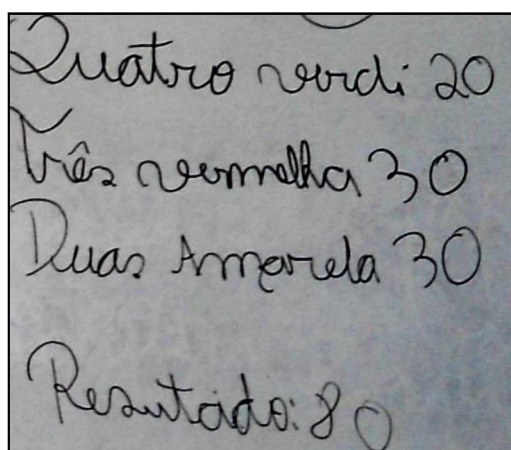 Quatro verdi 20
Três vermelha 30
Duas Amarela 30
Resutado: 80